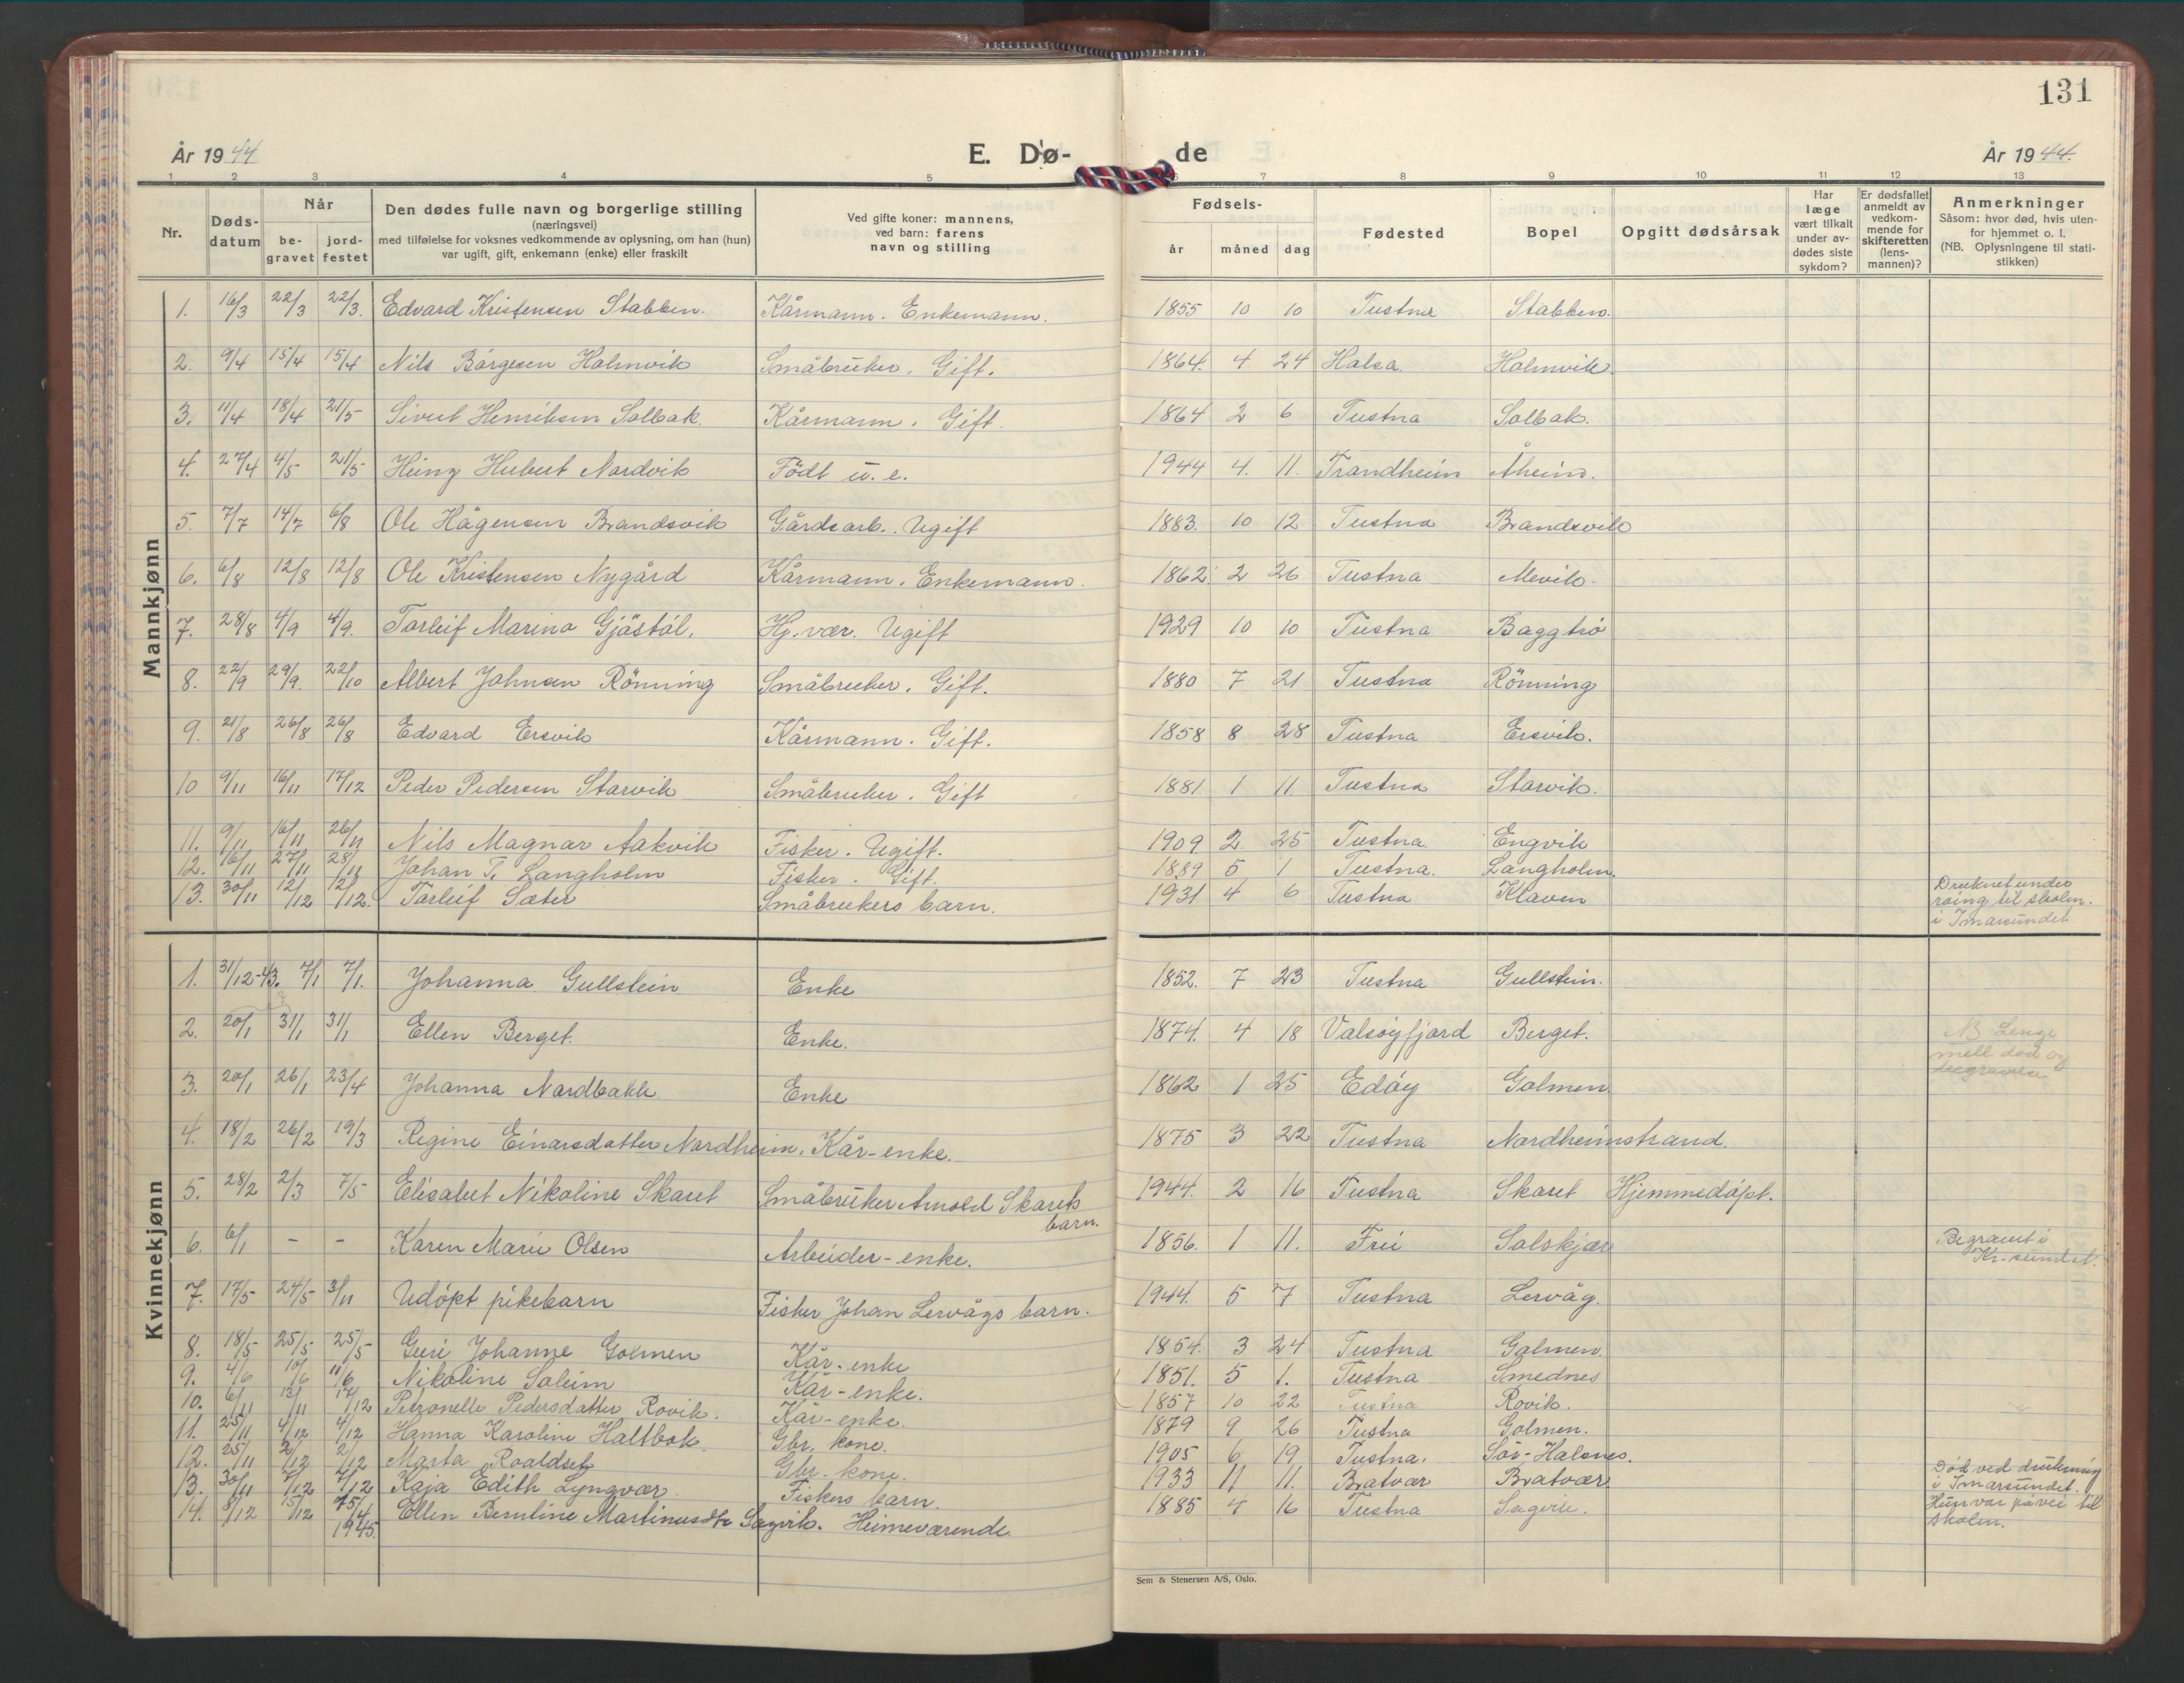 131
År 1944 E. Dø- de År 1944.
1 2 3 4 5 6 7 8 9 10 11 12 13
Nr. Døds-datum Når be-gravet jord-festet Den dødes fulle navn og borgerlige stilling (næringsvei) med tilføielse for voksnes vedkommende av oplysning, om han (hun) var ugift, gift, enkemann (enke) eller fraskilt Ved gifte koner: mannens, ved barn: farens navn og stilling Fødsels- år måned dag Fødested Bopel Opgitt dødsårsak Har læge vært tilkalt under av-dødes siste sykdom? Er dødsfallet anmeldt av vedkom-mende for skifteretten (lens-mannen)? Anmerkninger Såsom: hvor død, hvis uten-for hjemmet o. l. (NB. Oplysningene til stati-stikken)
Mannkjønn
1. 16/3 22/3 22/3. Edvard Kristensen Stabben. Kårmann. Enkemann. 1855 10 10 Tustna Stabben.
2. 9/4 15/4 15/4 Nils Börgesen Holmvik Småbruker. Gift. 1864. 4 24 Halsa. Holmvik.
3. 11/4 18/4 21/5 Sivert Henriksen Solbak. Kårmann. Gift. 1864 2 6 Tustna Solbak.
4. 27/4 4/5 21/5 Heinz Hubert Nordvik Födt u. e. 1944 4. 11. Trondheim Åheim.
5. 7/7 14/7 6/8 Ole Hågensen Brandsvik Gårdsarb. Ugift 1883. 10 12 Tustna Brandsvik
6. 6/8 12/8 12/8 Ole Kristensen Nygård Kårmann. Enkemann. 1862. 2 26 Tustna Mevik.
7. 28/8 4/9 4/9. Torleif Marino Gjöstöl. Hj.-vær. Ugift 1929 10 10 Tustna Baggtrö
8. 22/9 29/9. 22/10 Albert Johnsen Rönning Småbruker. Gift. 1880 7 21 Tustna Rönning
9. 21/8 26/8 26/8 Edvard Ersvik Kårmann. Gift. 1858 8 28 Tustna Ersvik.
10 9/11 16/11 17/12 Peder Pedersen Storvik Småbruker. Gift 1881. 1 11. Tustna Storvik.
11. 9/11 16/11 26/11 Nils Magnar Aakvik Fisker. Ugift. 1909. 2. 25 Tustna Engvik
12. 16/11 27/11 28/11 Johan T. Langholm Fisker. Gift. 1889 5 1 Tustna. Langholm.
13. 30/11 12/12 12/12. Torleif Sæter Småbrukers barn. 1931 4 6 Tustna Klaven Druknet under roing til skolen. i Imarsundet
Kvinnekjønn
1. 31/12-43. 7/1 7/1. Johanna Gullstein Enke 1852. 7 23 Tustna Gullstein.
2. 20/1 31/1 31/1 Ellen Berget. Enke. 1874. 4 18 Valsøyfjord Berget. NB Lenge mell. död og begravelse
3. 20/1 26/1 23/4 Johanna Nordbakk Enke 1862 1 25 Edöy Golmen
4. 18/2 26/2 19/3 Regine Einarsdatter Nordheim. Kår-enke. 1875 3 22 Tustna Nordheimstrand.
5. 28/2 2/3 7/5 Elisabet Nikoline Skaret Småbruker Arnold Skarets barn. 1944. 2 16 Tustna Skaret Hjemmedöpt.
6. 6/1 - - Karen Marie Olsen Arbeider-enke. 1856. 1 11. Frei Solskjær Begravet i Kr.-sundet.
7. 17/5 24/5 3/11 Udöpt pikebarn Fisker Johan Lervågs barn. 1944. 5 7 Tustna Lervåg.
8. 18/5 25/5 25/5 Guri Johanne Golmen Kår-enke 1854. 3 24 Tustna Golmen.
9. 4/6 10/6 11/6 Nikoline Soleim Kår-enke. 1851. 5 1. Tustna Smednes
10. 6/11 13/11 17/12 Petronelle Pedersdatter Rovik. Kår-enke. 1857 10 22 Tustna Rovik.
11. 25/11 4/12 4/12 Hanna Karoline Haltbok. Gbr. kone. 1879 9 26 Tustna Golmen.
12. 25/11 2/12 2/12 Marta Roaldset Gbr. kone. 1905 6 19 Tustna. Sör-Halsnes.
13. 30/11 7/12 7/12 Kaja Edith Lyngvær Fiskers barn. 1933 11 11. Bratvær Bratvær Död ved drukning i Imarsundet. Hun var på vei til skolen.
14. 8/12 15/12 15/4 1945. Ellen Berntine Martinusdtr Sagvik. Heimeværende 1885 4 16 Tustna Sagvik.
Sem & Stenersen A/S, Oslo.